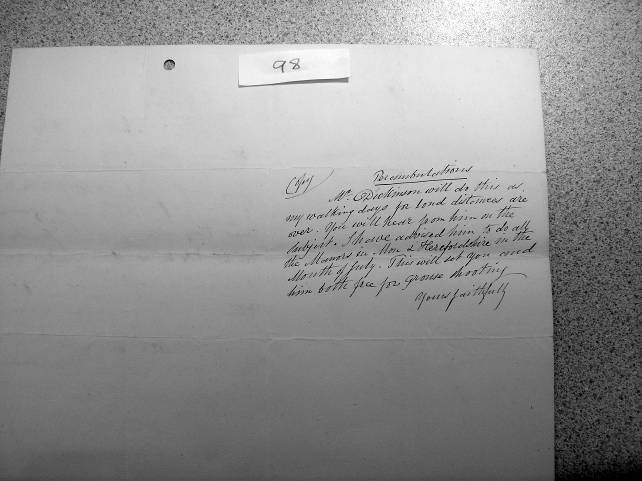 98
Perambulations
Copy
Mr. Dickinson will do this as
my walking days for long distances are
over. You will hear from him on the
subject. I have advised him to do all
the Manors in Mon & Herefordshire in the
Month of July. This will set you and
him both free for grouse shooting
Yours faithfully